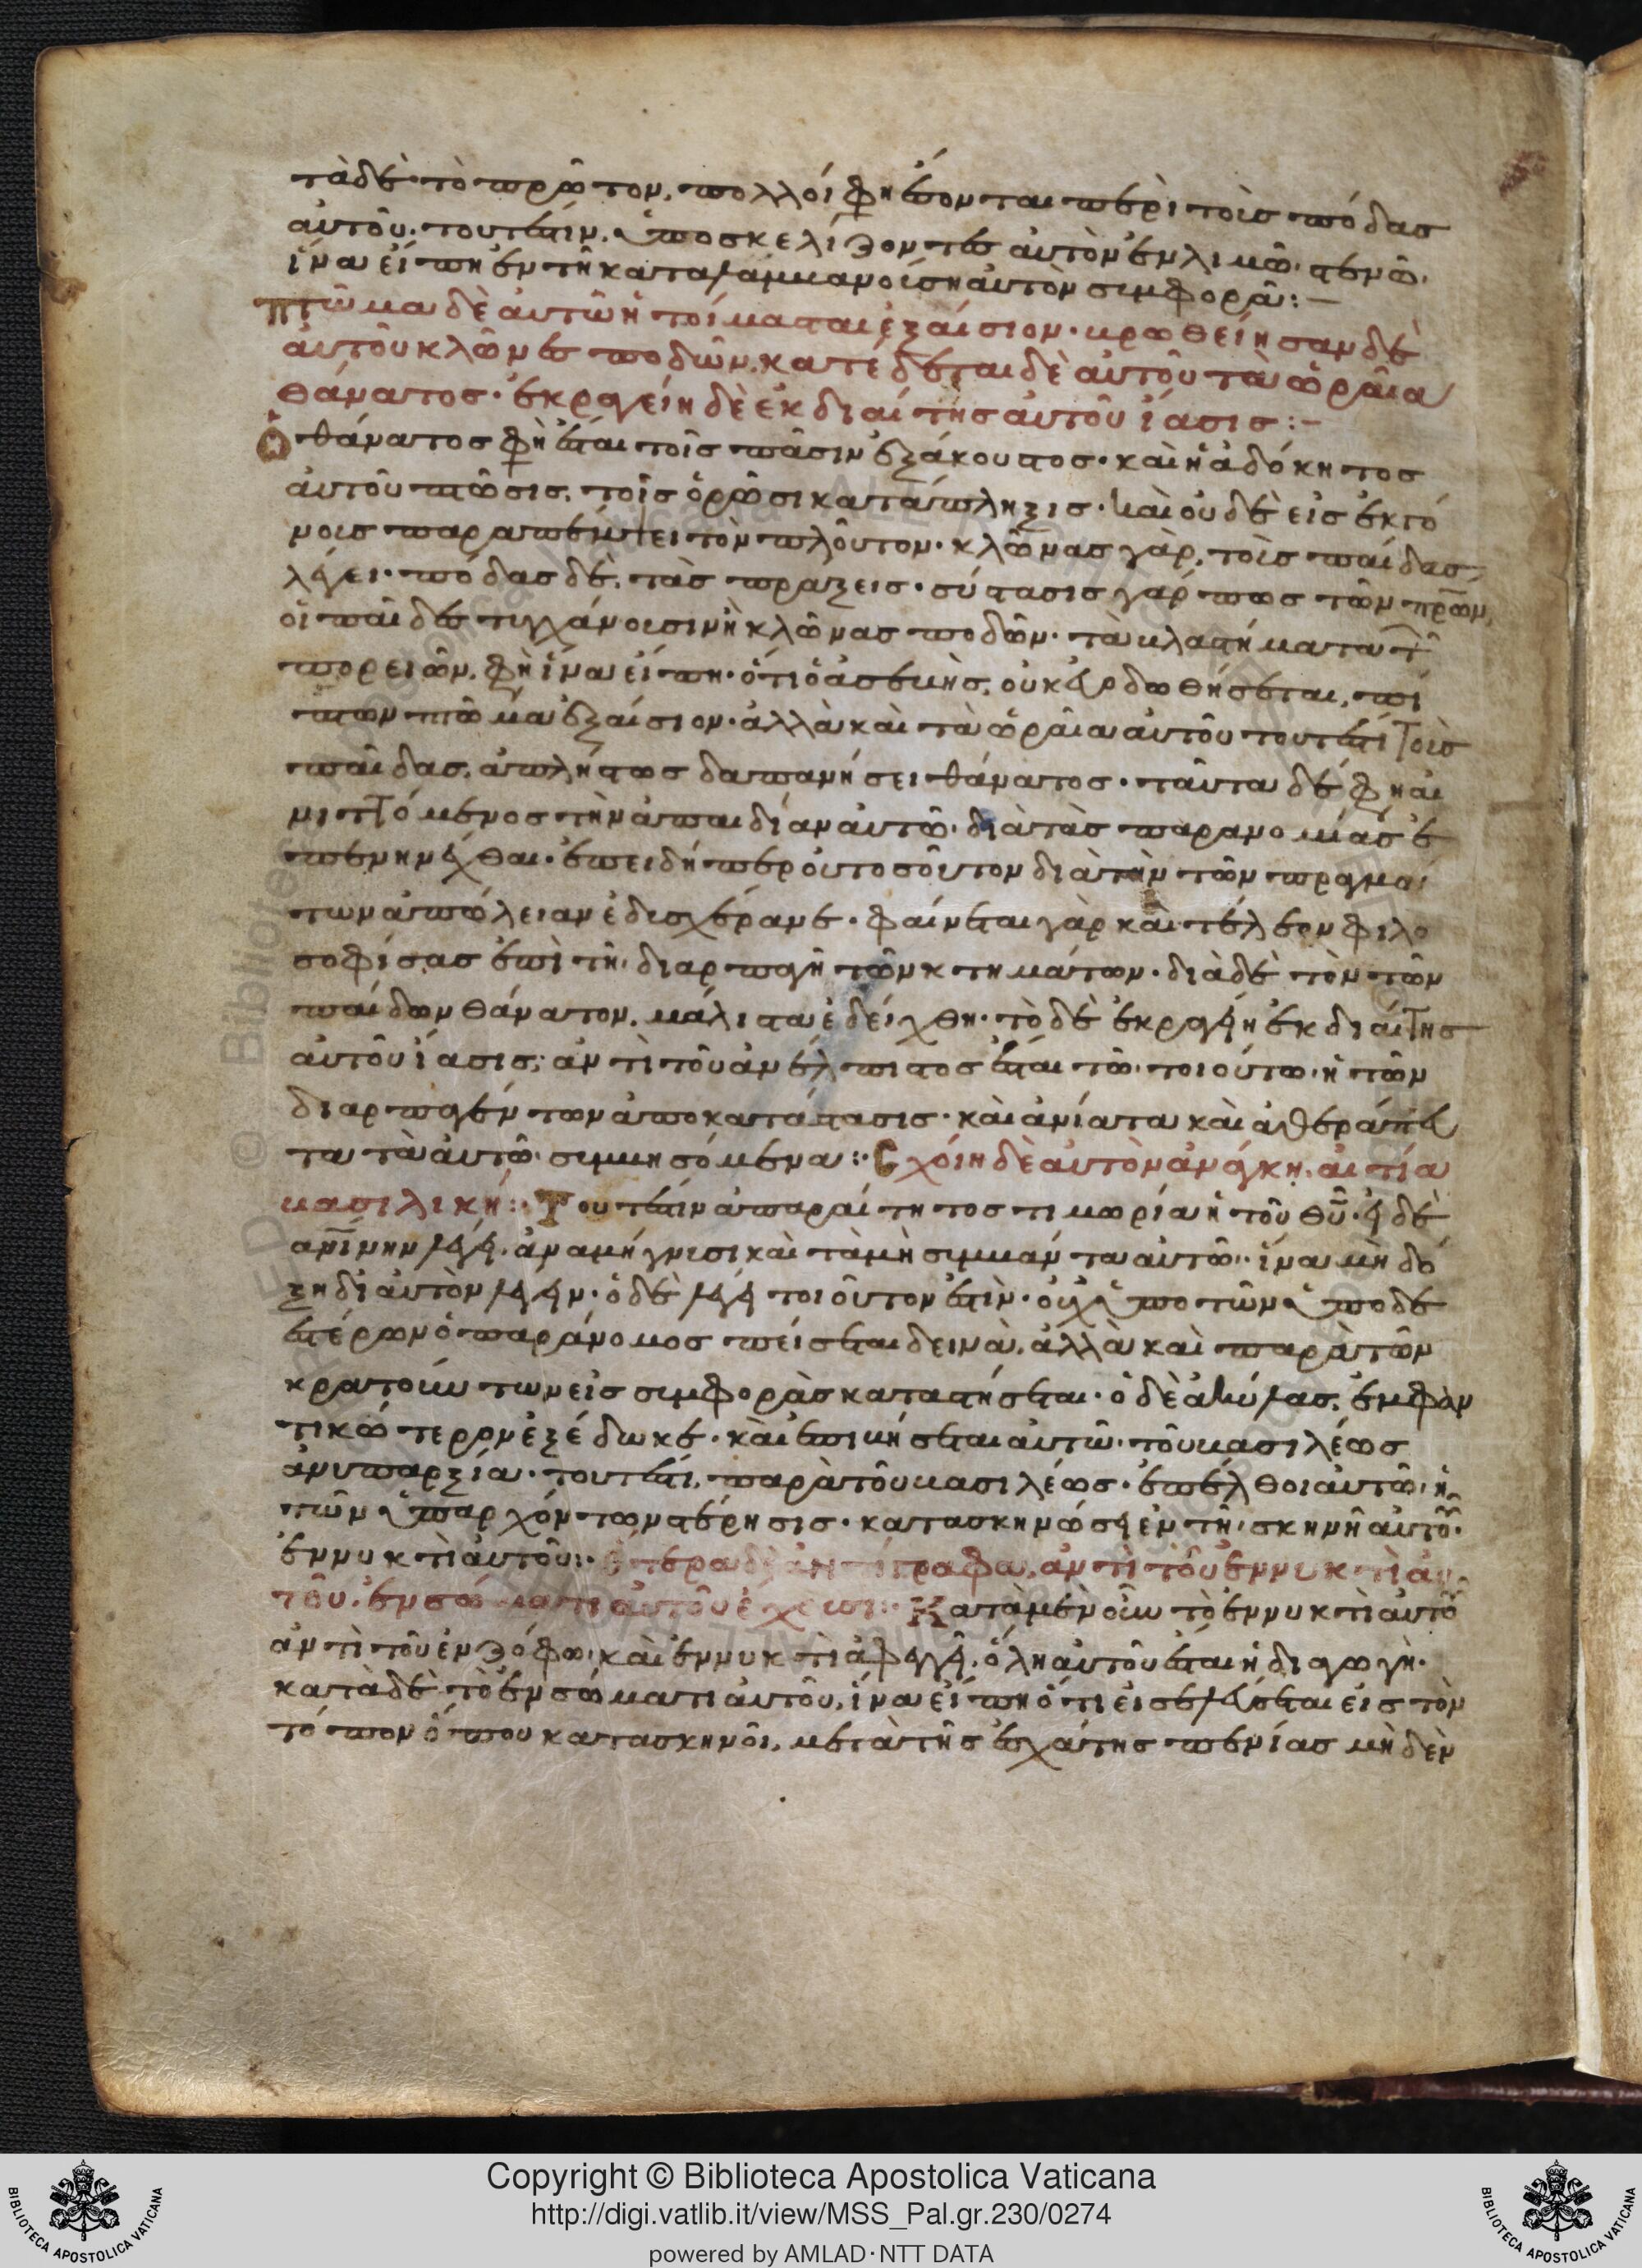 τὰ δὲ τὸ πρῶτον, πολλοί φη ἕσονται περὶ τοὺς πόδας
αὐτοῦ. τουτέστιν, ὑποσκελίζοντες αὐτὸν ἐν λιμῶ στενῶ.
ἵνα εἴπη ἐν τῆ καταλαμβανούση αὐτὸν συμφορᾶ:–
πτῶμα δὲ αὐτῶ ἡτοίμασται ἐξαίσιον. βρωθείησαν δὲ
αὐτοῦ κλῶνες ποδῶν, κατέδεται δὲ αὐτοῦ τὰ ὡραῖα
θάνατος. ἐκραγείη δὲ ἐκ διαίτης αὐτοῦ ἴασις:–
Ὁ θάνατος φὴ ἔσται τοῖς πᾶσιν ἐξάκουστος. καὶ ἡ ἀδόκητος
αὐτοῦ πτῶσις, τοῖς ὁρῶσι κατάπληξις. καὶ οὐδὲ εἰς ἐκγό
νους παραπέμπει τὸν πλοῦτον. κλῶνας γὰρ, τοὺς παῖδας
λέγει. πόδας δὲ, τὰς πράξεις. σύστασις γάρ πως τῶν πρων,
οἱ παῖδες τυγχάνουσιν ἢ κλῶνας ποδῶν. τὰ βλαστήματα τ
πορειῶν, φὴ ἵνα εἴπη. ὅτι ὁ ἀσεβὴς, οὐ κερδωθήσεται, πί
πτων πτῶμα ἐξαίσιον. ἀλλὰ καὶ τὰ ὡραῖα αὐτοῦ τουτέστι τοὺς
παῖδας, ἀπλήστως δαπανήσει θάνατος. ταῦτα δέ φη αἰ
νιττόμενος τὴν ἀπαιδίαν αὐτῶ. διὰ τὰς παρανομίας ἐ
πενηνέχθαι. ἐπειδήπερ οὐ τοσοῦτον διὰ τὴν τῶν πραγμά
των ἀπώλειαν ἐδυσχέρανε. φαίνεται γὰρ καὶ τέλεον φιλο
σοφήσας ἐπὶ τῆ διαρπαγῆ τῶν κτημάτων. διὰ δὲ τὸν τῶν
παίδων θάνατον, μάλιστα ἐδείχθη. τὸ δὲ ἐκραγείη ἐκ διαίτης
αὐτοῦ ἴασις, ἀντὶ τοῦ ἀνέλπιστος ἔσται τῶ τοιούτω ἡ τῶν
διαρπαγέντων ἀποκατάστασις. καὶ ἀνίατα καὶ ἀθεράπευ
τα τὰ αὐτῶ συμβησόμενα: Σχοίη δὲ αὐτὸν ἀνάγκη, αἰτία
βασιλική: Τουτέστιν ἀπαραίτητος τιμωρία ἡ τοῦ θυ.
ἀναμίγνυσι καὶ τὰ μὴ συμβάντα αὐτῶ. ἵνα μὴ δό
ξη δι αὐτὸν λέγειν. ὃ δὲ λέγει τοιοῦτον ἐστίν. οὐχ ὑπὸ τῶν ὑποδε
εστέρων ὁ παράνομος πείσεται δεινὰ, ἀλλὰ καὶ παρὰ τῶν
κρατούντων εἰς συμφορὰς καταστήσεται. ὁ δὲ ἀκύλας, ἐμφαν
τικώτερον ἐξέδωκε. καὶ ἐπιβήσεται αὐτῶ τοῦ βασιλέως
ἀνυπαρξία. τουτέστι, παρὰ τοῦ βασιλέως. ἐπέλθοι αὐτῶ ἡ
τῶν ὑπαρχόντων στέρησις. κατασκηνώσει ἐν τῆ σκηνῆ αὐτοῦ.
ἐν νυκτὶ αὐτοῦ: ἕτερα δὲ ἀντίγραφα, ἀντὶ τοῦ ἐν νυκτὶ αὐ
τοῦ, ἐν σώματι αὐτοῦ ἔχουσι: Κατὰ μὲν οὖν τὸ ἐν νυκτὶ αὐτοῦ
ἀντὶ τοῦ ἐν ζόφω καὶ ἐν νυκτὶ ἀφεγγεῖ, ὅλη αὐτοῦ ἔσται ἡ διαγωγὴ.
κατὰ δὲ τὸ ἐν σώματι αὐτοῦ, ἵνα εἴπη ὅτι εἰσελεύσεται εἰς τὸν
τόπον ὅπου κατασκηνοῖ, μετὰ τῆς ἐσχάτης πενίας μὴδὲν
Copyright © Biblioteca Apostolica Vaticana
http://digi.vatlib.it/view/MSS_Pal.gr.230/0274
powered by AMLAD·NTT DATA
BIBLIOTECA APOSTOLICA VATICANA
BIBLIOTECA APOSTOLICA VATICANA